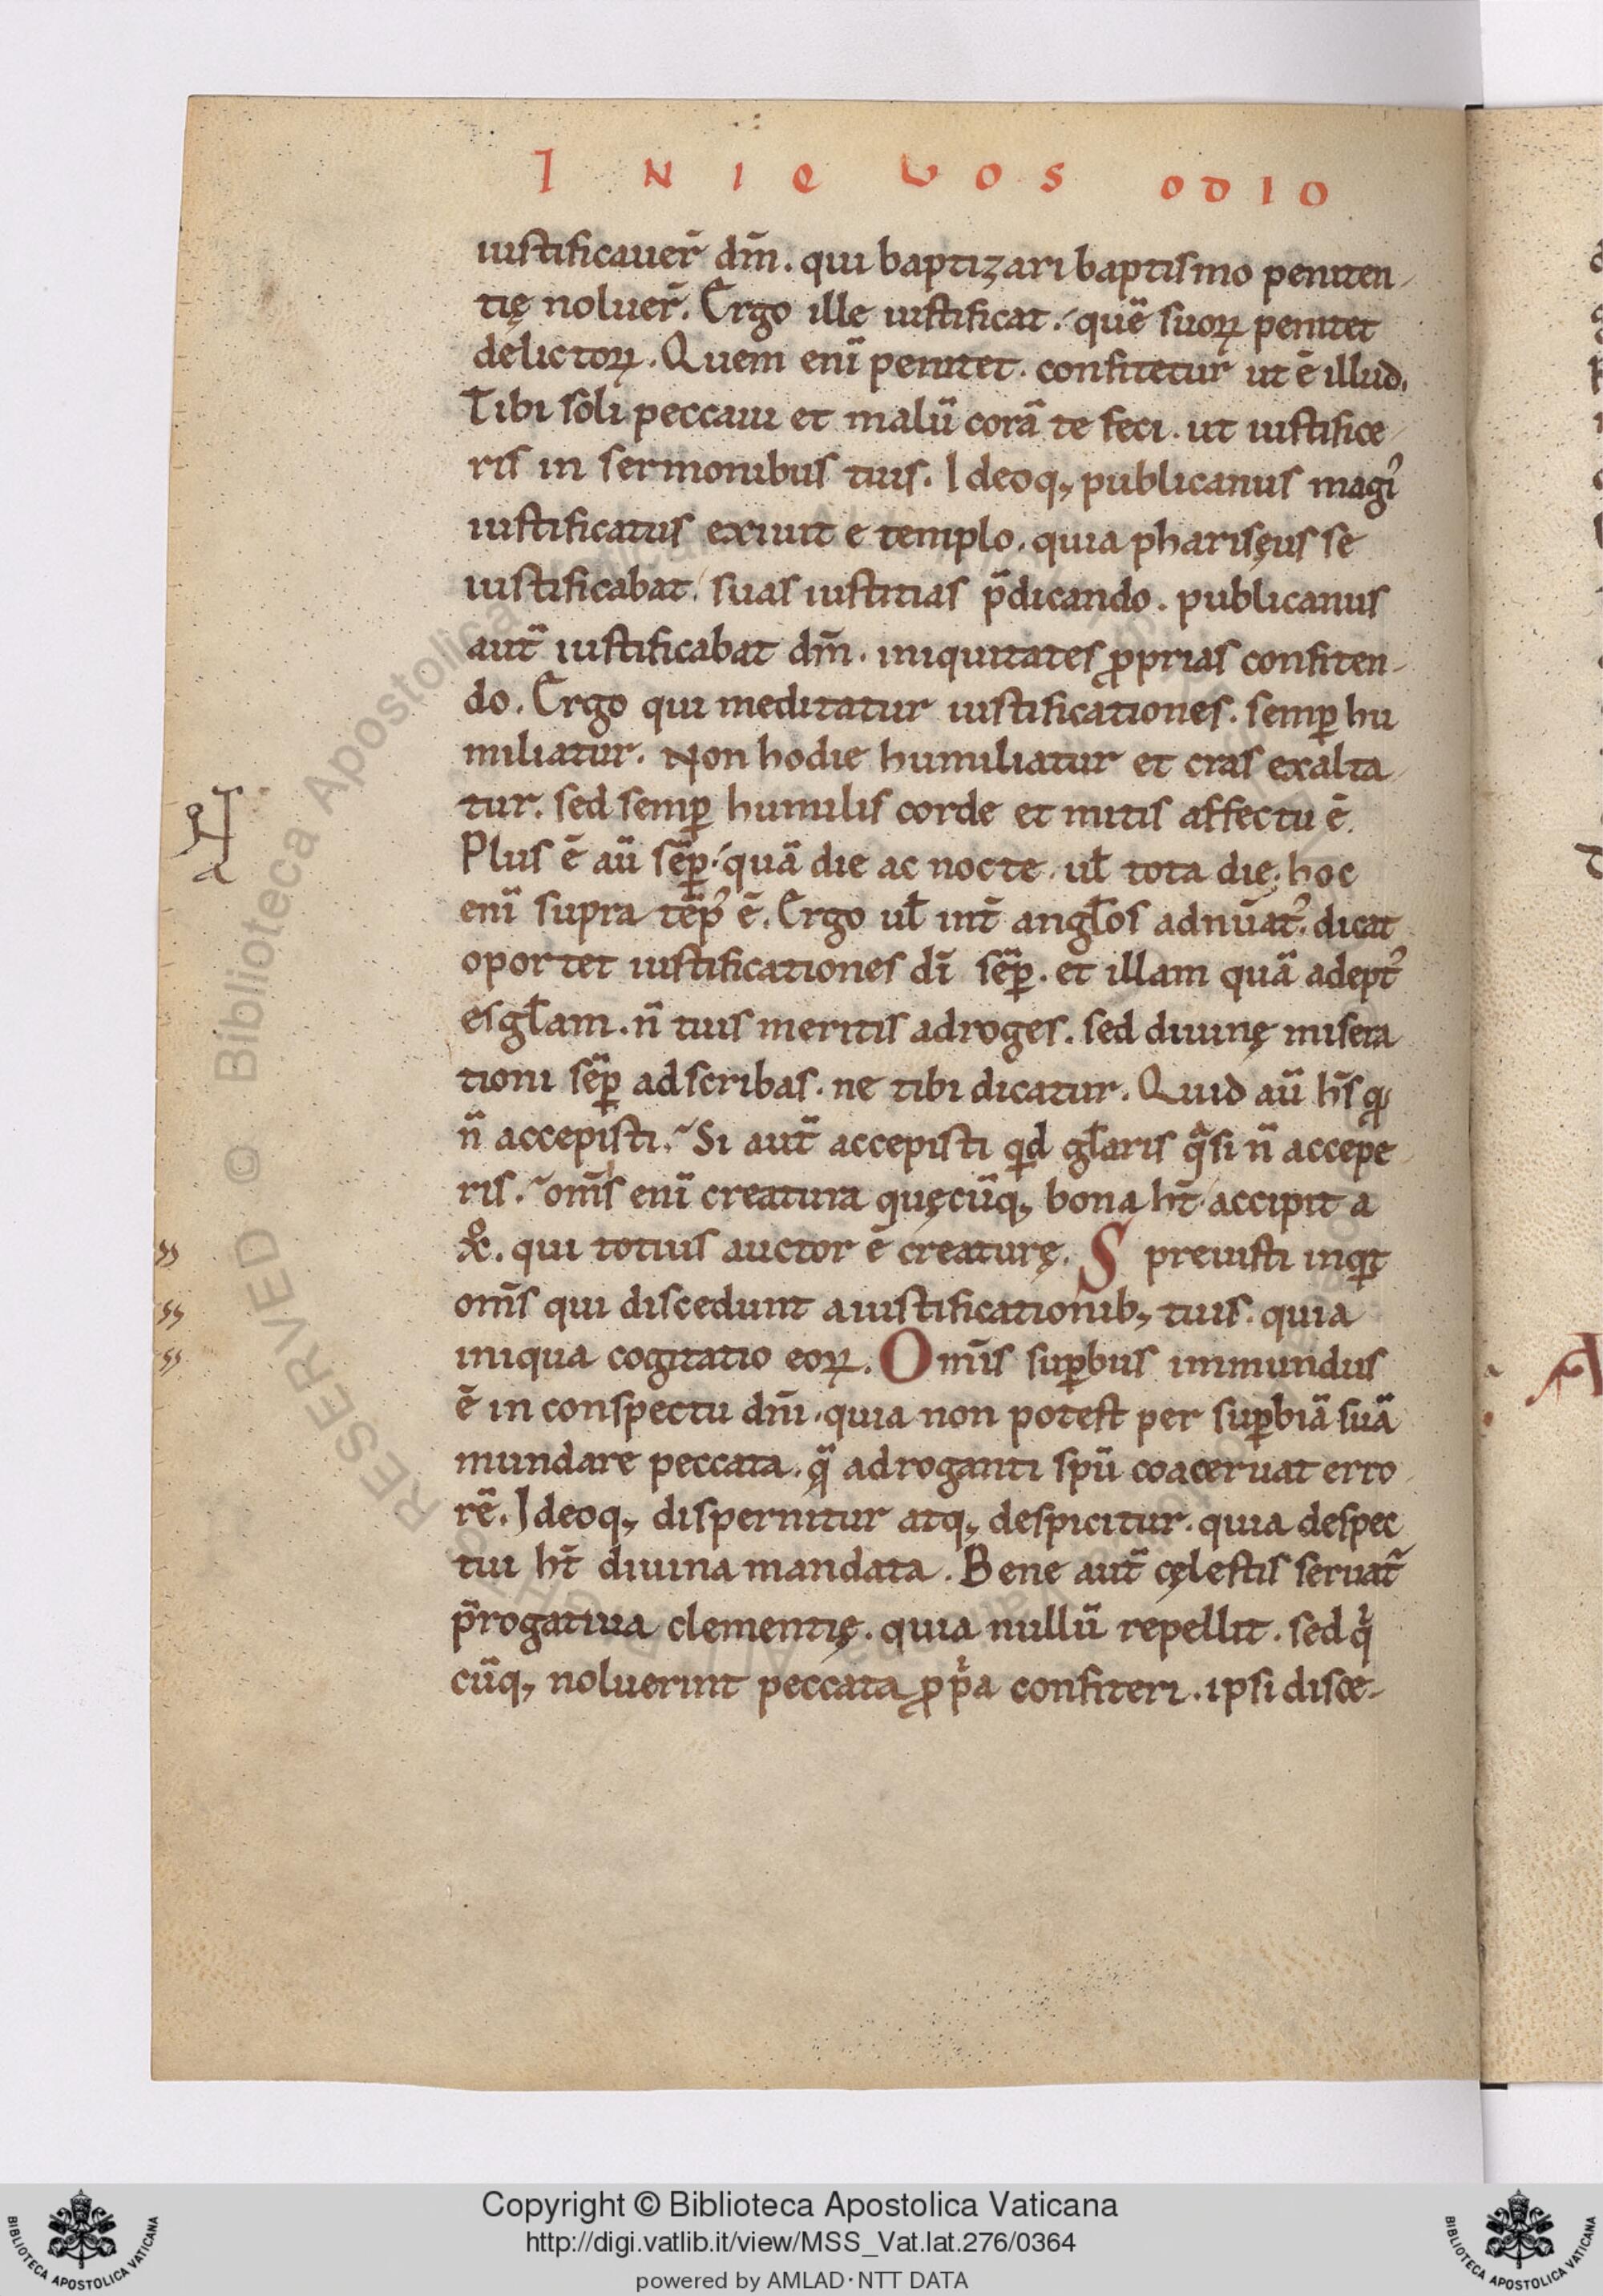 I N I Q U O S O D I O
iustificauer̄ dm̄. qui baptizari baptismo peniten-
tię noluer̄. Ergo ille iustificat. quē suoꝝ penitet
delictoꝝ. Quem enī penitet. confitetur ut ē illud.
Tibi soli peccaui et malū corā te feci. ut iustifice-
ris in sermonibus tuis. Ideoq; publicanus magiꝰ
iustificatus exiuit e templo. quia pharisęus se
iustificabat. suas iustitias p̄dicando. publicanus
aut̄ iustificabat dm̄. iniquitates ꝓprias confiten-
do. Ergo qui meditatur iustificationes. semꝑ hu
miliatur. Non hodie humiliatur et cras exalta-
tur. sed semꝑ humilis corde et mitis affectu ē.
Plus ē aū sēꝑ. quā die ac nocte. ul̄ tota die. hoc
enī supra tēpꝰ ē. Ergo ul̄ int̄ angl̄os adnūatꝰ. dicat
oportet iustificationes dī sēꝑ. et illam quā adeptꝰ
es gl̄am. n̄ tuis meritis adroges. sed diuinę misera
tioni sēꝑ adscribas. ne tibi dicatur. Quid aū hr̄s qđ
n̄ accepisti. Si aut̄ accepisti qid gl̄aris qasi n̄ accepe-
ris. om̄s enī creatura quęcūq; bona ht̄ accipit a
xo. qui totius auctor ē creaturę. Spreuisti inqit
om̄s qui discedunt a iustificationib; tuis. quia
iniqua cogitatio eoꝝ. Om̄is suꝑbus immundus
ē in conspectu dnī. quia non potest per suꝑbiā suā
mundare peccata. q̄ adroganti spū coaceruat erro-
rē. Ideoq; dispernitur atq; despicitur. quia despec
tui ht̄ diuina mandata. Bene aut̄ cęlestis seruat̄
p̄rogatiua clementię. quia nullū repellit. sed qi
cūq; noluerint peccata ꝓpia confiteri. ipsi disce-
Copyright © Biblioteca Apostolica Vaticana
http://digi.vatlib.it/view/MSS_Vat.lat.276/0364
powered by AMLAD·NTT DATA